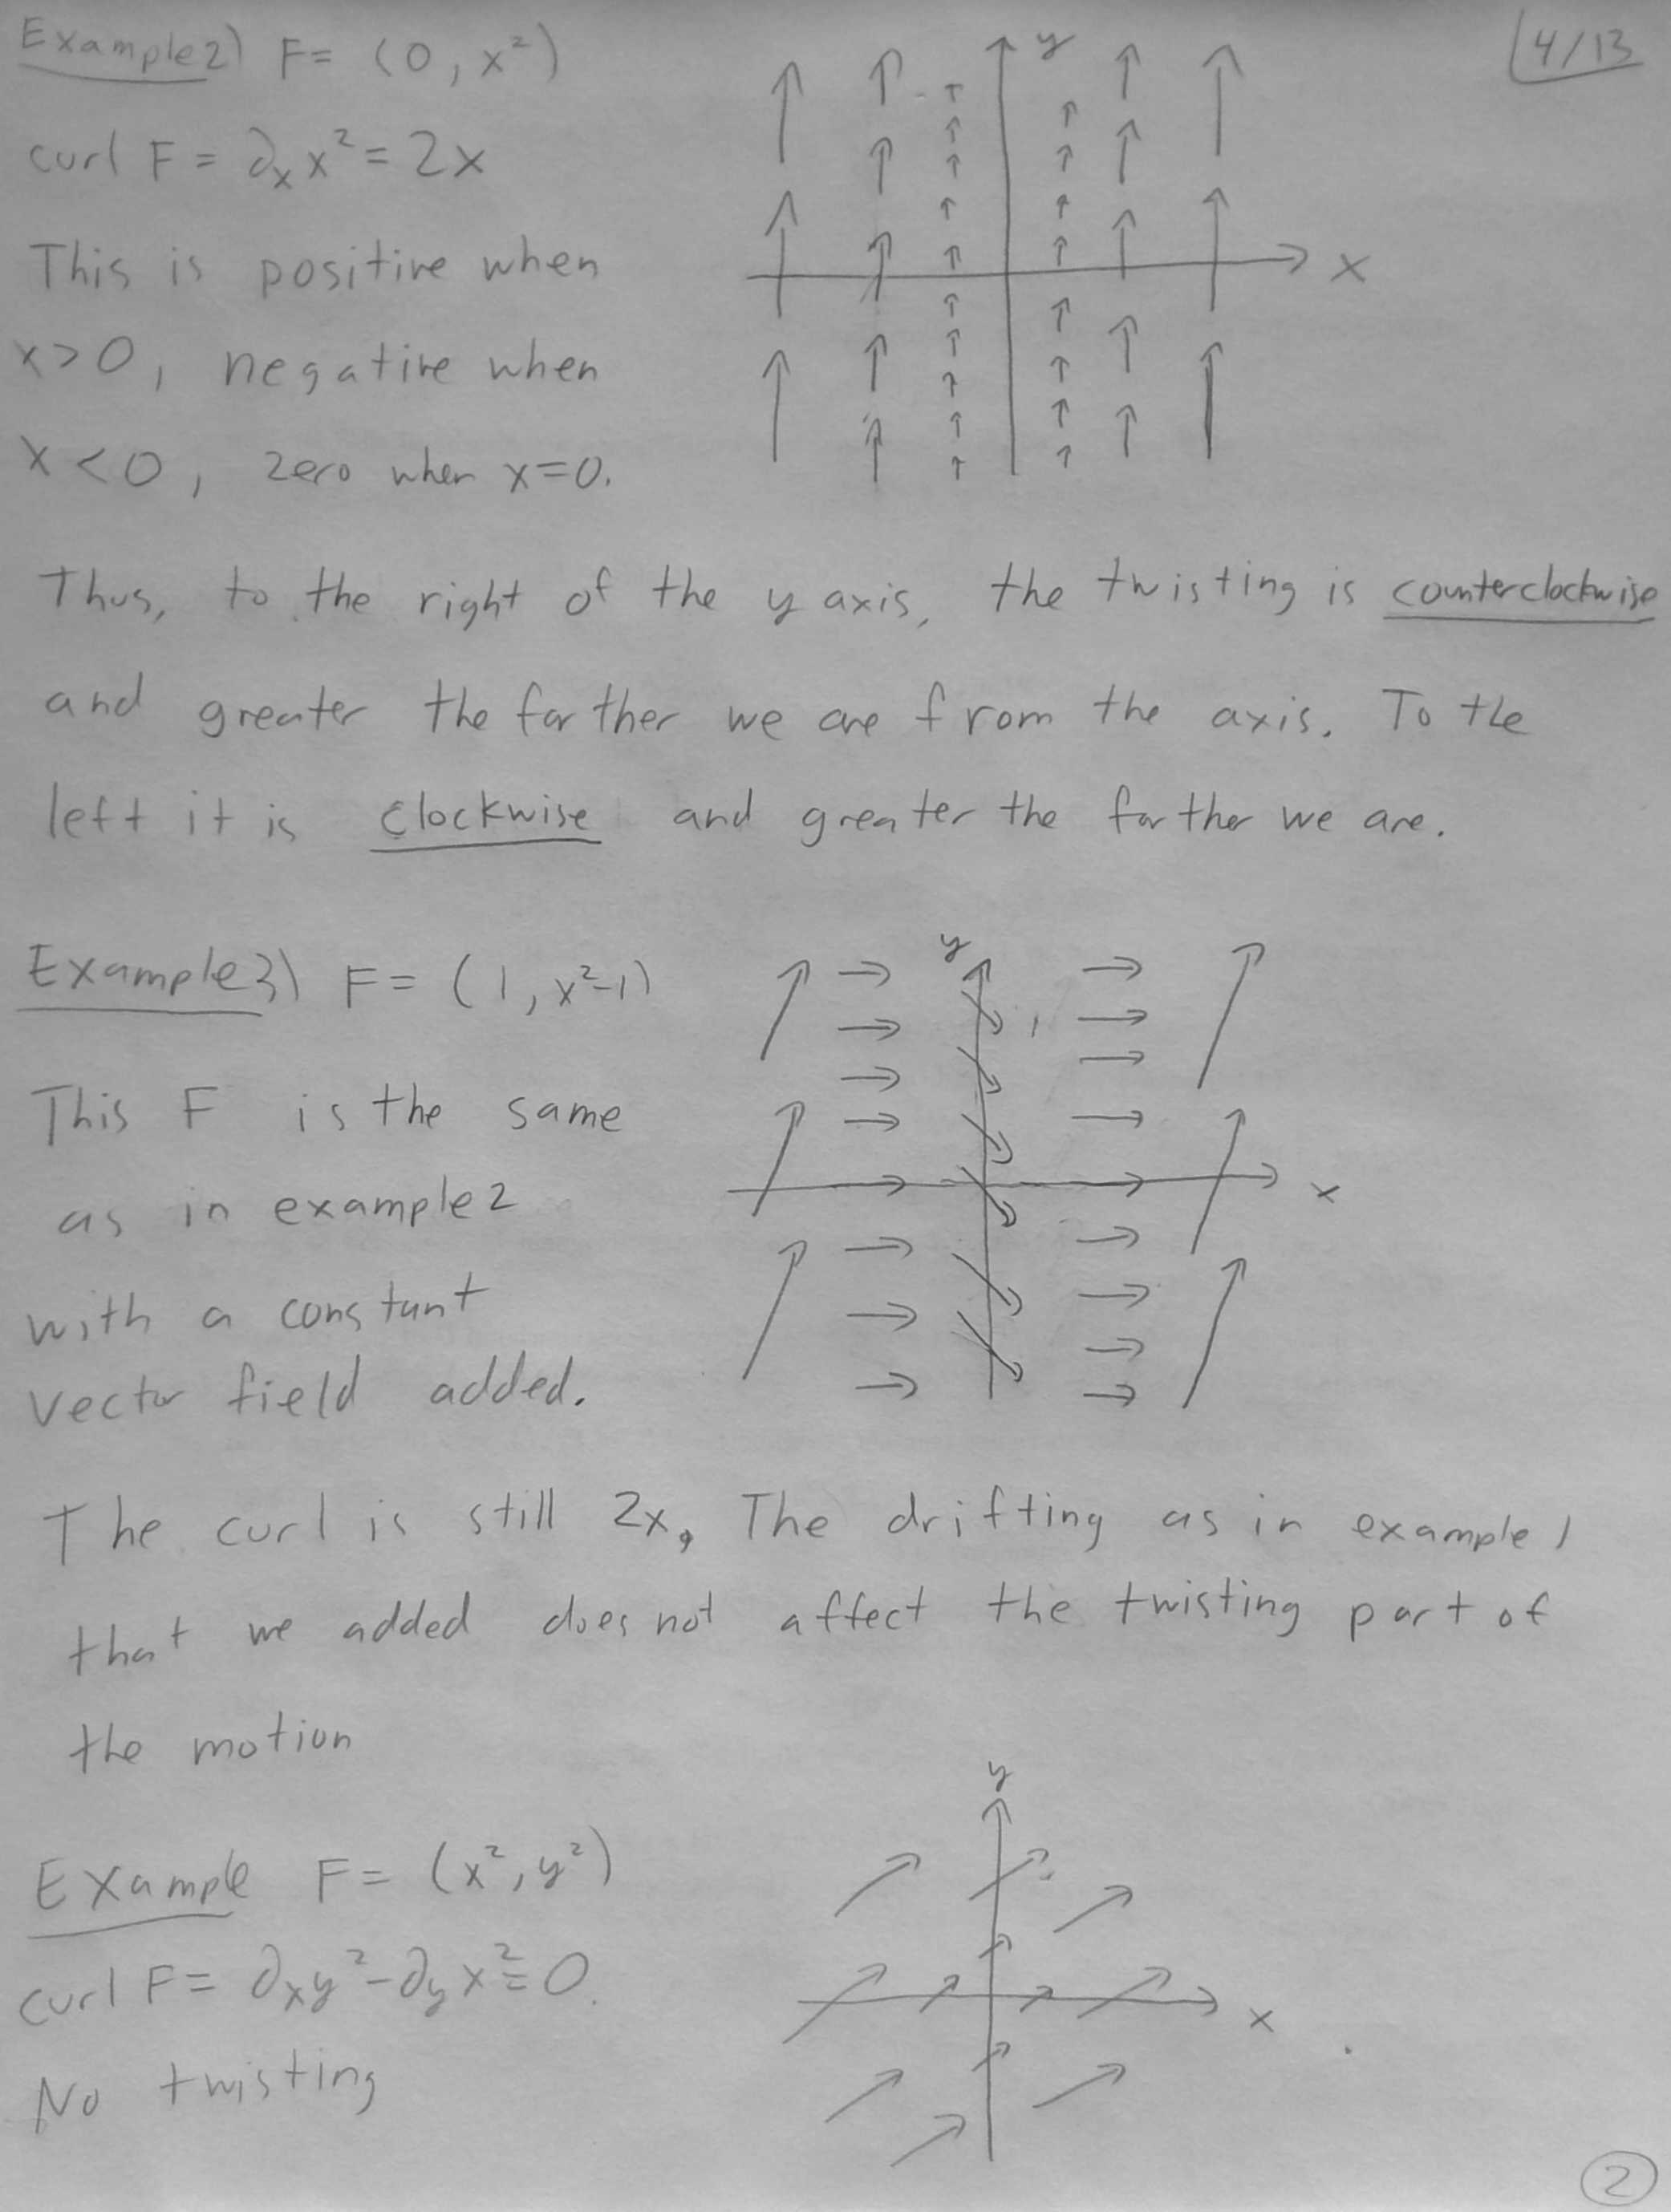 Example 2) F = (0, x²)
4/13
y
curl F = ∂ₓ x² = 2x
This is positive when
x
x>0, negative when
x<0, zero when x=0.
Thus, to the right of the y axis, the twisting is counterclockwise
and greater the farther we are from the axis. To the
left it is clockwise and greater the farther we are.
Example 3) F = (1, x²-1)
y
This F is the same
as in example 2
x
with a constant
vector field added.
The curl is still 2x, The drifting as in example 1
that we added does not affect the twisting part of
the motion
y
Example F = (x², y²)
curl F = ∂ₓy² - ∂ᵧx² = 0.
x
No twisting
2